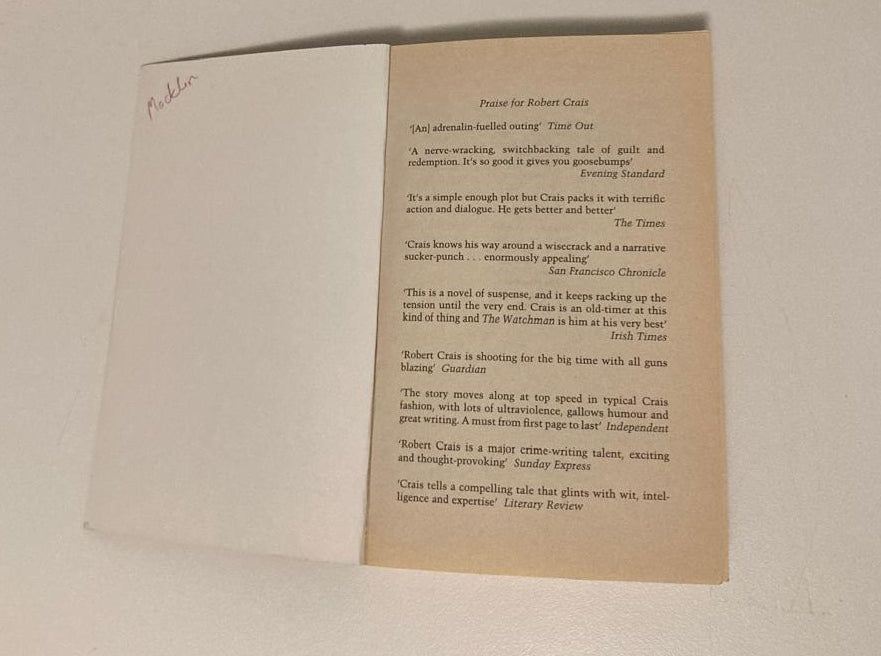 Mocklin
Praise for Robert Crais
‘[An] adrenalin-fuelled outing’ Time Out
‘A nerve-wracking, switchbacking tale of guilt and
redemption. It’s so good it gives you goosebumps’
Evening Standard
‘It’s a simple enough plot but Crais packs it with terrific
action and dialogue. He gets better and better’
The Times
‘Crais knows his way around a wisecrack and a narrative
sucker-punch . . . enormously appealing’
San Francisco Chronicle
‘This is a novel of suspense, and it keeps racking up the
tension until the very end. Crais is an old-timer at this
kind of thing and The Watchman is him at his very best’
Irish Times
‘Robert Crais is shooting for the big time with all guns
blazing’ Guardian
‘The story moves along at top speed in typical Crais
fashion, with lots of ultraviolence, gallows humour and
great writing. A must from first page to last’ Independent
‘Robert Crais is a major crime-writing talent, exciting
and thought-provoking’ Sunday Express
‘Crais tells a compelling tale that glints with wit, intel-
ligence and expertise’ Literary Review